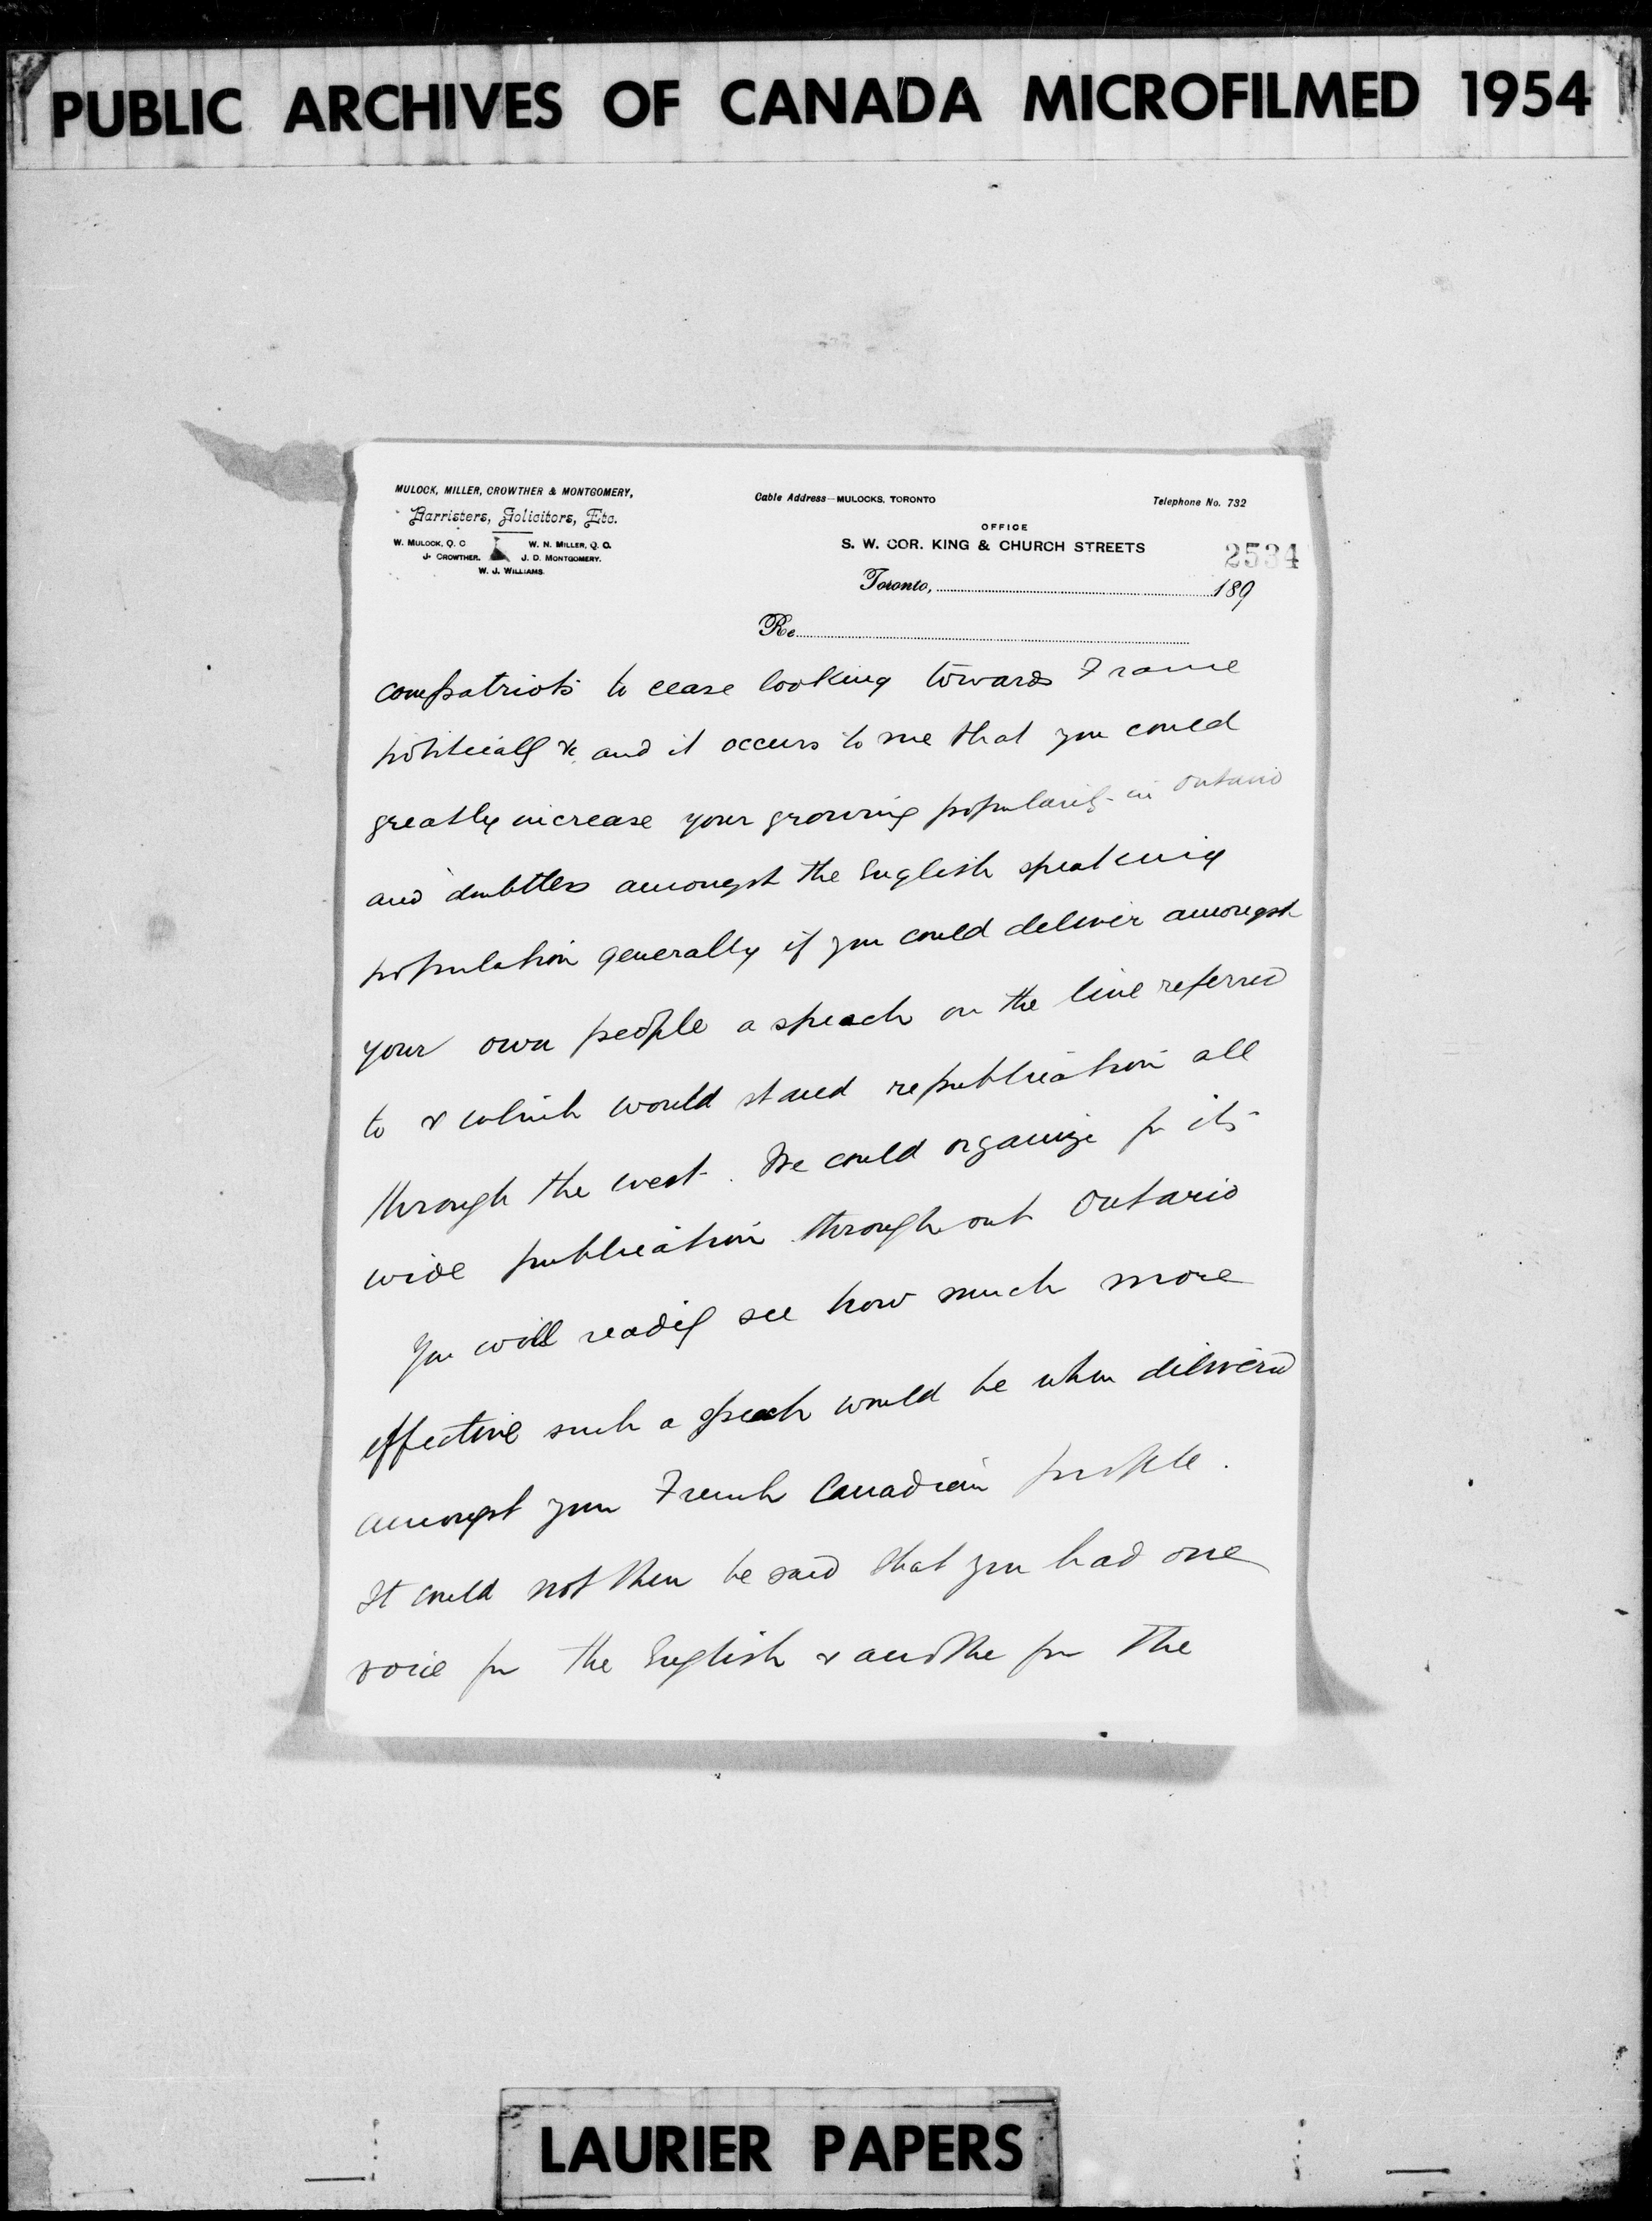 PUBLIC ARCHIVES OF CANADA MICROFILMED 1954
MULOCK, MILLER, CROWTHER & MONTGOMERY,
Barristers, Solicitors, Etc.
W. MULOCK, Q. C W. N. MILLER, Q. C.
J. CROWTHER. J. D. MONTGOMERY.
W. J. WILLIAMS.
Cable Address—MULOCKS, TORONTO
Telephone No. 732
OFFICE
S. W. COR. KING & CHURCH STREETS
2534
Toronto, 189
Re
compatriots to cease looking towards France
politically &c, and it occurs to me that you could
greatly increase your growing popularity in Ontario
and doubtless amongst the English speaking
population generally if you could deliver amongst
your own people a speech on the line referred
to & which would stand republication all
through the west. We could organize for its
wide publication throughout Ontario
You will readily see how much more
effective such a speech would be when delivered
amongst your French Canadian people.
It could not then be said that you had one
voice for the English & another for the
LAURIER PAPERS